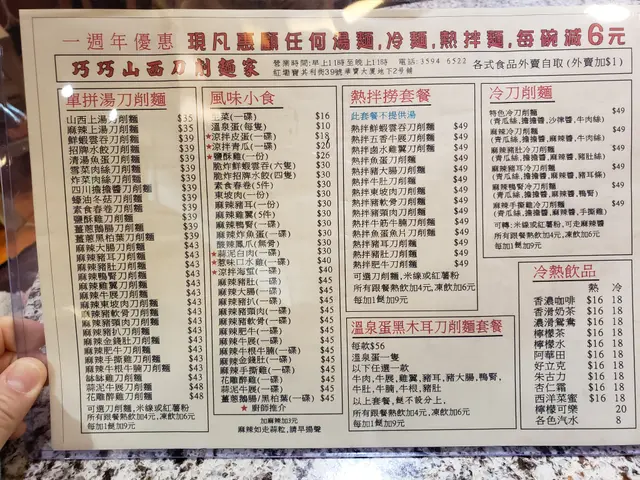 一週年優惠 現凡惠顧任何湯麵,冷麵,熱拌麵,每碗減6元
巧巧山西刀削麵家
營業時間:早上11時至晚上11時 電話:3594 6522
紅磡寶其利街39號華寶大廈地下2號舖
各式食品外賣自取(外賣加$1)
單拼湯刀削麵
山西上湯刀削麵 $35
麻辣上湯刀削麵 $35
鮮蝦雲吞刀削麵 $39
招牌水餃刀削麵 $39
清湯魚蛋刀削麵 $39
雪菜肉絲刀削麵 $39
炸菜肉絲刀削麵 $39
四川擔擔醬刀削麵 $39
蠔油冬菇刀削麵 $39
素食春卷刀削麵 $39
鹽酥雞刀削麵 $39
薑蔥鵝腸刀削麵 $39
薑蔥黑柏葉刀削麵 $39
麻辣大腸刀削麵 $43
麻辣豬耳刀削麵 $43
麻辣豬肚刀削麵 $43
麻辣鴨腎刀削麵 $43
麻辣雞翼刀削麵 $43
麻辣牛脹刀削麵 $43
麻辣東坡肉刀削麵 $43
麻辣豬軟骨刀削麵 $43
麻辣豬頸肉刀削麵 $43
麻辣豬扒刀削麵 $43
麻辣金錢肚刀削麵 $43
麻辣肥牛刀削麵 $43
麻辣手撕雞刀削麵 $43
麻辣牛根牛腩刀削麵 $43
缽缽雞刀削麵 $43
蒜泥牛脹刀削麵 $48
花雕醉雞刀削麵 $48
可選刀削麵,米線或紅薯粉
所有跟餐熱飲加4元,凍飲加6元
每加1餸加9元
風味小食
皮蛋(一碟) $16
溫泉蛋(每隻) $10
★涼拌皮蛋(一碟) $18
★涼拌青瓜(一碟) $20
★鹽酥雞(一份) $26
脆炸鮮蝦雲吞(六隻) $30
脆炸招牌水餃(四隻) $30
素食春卷(5件) $30
東坡肉(一份) $30
麻辣豬耳(一份) $30
麻辣雞翼(5件) $30
麻辣鴨腎(一碟) $30
麻辣炸魚蛋(一碟) $30
酸辣鳳爪(無骨) $30
★蒜泥白肉(一碟) $30
★惹味口水雞(一碟) $40
★涼拌海蜇(一碟) $40
麻辣豬肚(一碟) $45
麻辣大腸(一碟) $45
麻辣豬扒(一碟) $45
麻辣豬頸肉(一碟) $45
麻辣豬軟骨(一碟) $45
麻辣肥牛(一碟) $45
麻辣牛脹(一碟) $45
麻辣牛根牛腩(一碟) $45
麻辣金錢肚(一碟) $45
麻辣手撕雞(一碟) $45
花雕醉雞(一碟) $45
蒜泥牛脹(一碟) $45
薑蔥鵝腸/黑柏葉(一碟) $45
★ 廚師推介
加麻辣加3元
麻辣如走蒜粒,請早揚聲
熱拌撈套餐
此套餐不提供湯
熱拌鮮蝦雲吞刀削麵 $49
熱拌五香牛脹刀削麵 $49
熱拌鹵水雞翼刀削麵 $49
熱拌魚蛋刀削麵 $49
熱拌豬大腸刀削麵 $49
熱拌牛肚刀削麵 $49
熱拌東坡肉刀削麵 $49
熱拌豬軟骨刀削麵 $49
熱拌豬頸肉刀削麵 $49
熱拌牛筋牛腩刀削麵 $49
熱拌魚蛋魚片刀削麵 $49
熱拌豬耳刀削麵 $49
熱拌豬肚刀削麵 $49
熱拌肥牛刀削麵 $49
可選刀削麵,米線或紅薯粉
所有跟餐熱飲加4元,凍飲加6元
每加1餸加9元
溫泉蛋黑木耳刀削麵套餐
每款$56
溫泉蛋一隻
以下任選一款
牛肉,牛脹,雞翼,豬耳,豬大腸,鴨腎,
牛肚,牛腩,牛根,豬肚
以上套餐,餸不設分上,
所有跟餐熱飲加4元,凍飲加6元
每加1餸加9元
冷刀削麵
特色冷刀削麵 $49
(青瓜絲,擔擔醬,沙律醬,牛肉絲)
麻辣冷刀削麵 $49
(青瓜絲,擔擔醬,麻辣醬,牛肉絲)
麻辣豬肚冷刀削麵 $49
(青瓜絲,擔擔醬,麻辣醬,豬肚絲)
麻辣豬耳冷刀削麵 $49
(青瓜絲,擔擔醬,麻辣醬,豬耳條)
麻辣鴨腎冷刀削麵 $49
(青瓜絲,擔擔醬,麻辣醬,鴨腎)
麻辣手撕雞冷刀削麵 $49
(青瓜絲,擔擔醬,麻辣醬,手撕雞)
可轉:米線或紅薯粉,可走麻辣醬
所有跟餐熱飲加4元,凍飲加6元
每加1餸加9元
冷熱飲品
熱 冷
香濃咖啡 $16 18
香滑奶茶 $16 18
濃滑鴛鴦 $16 18
檸檬茶 $16 18
檸檬水 $16 18
阿華田 $16 18
好立克 $16 18
朱古力 $16 18
杏仁霜 $16 18
西洋菜蜜 $16 18
檸檬可樂 20
各色汽水 8